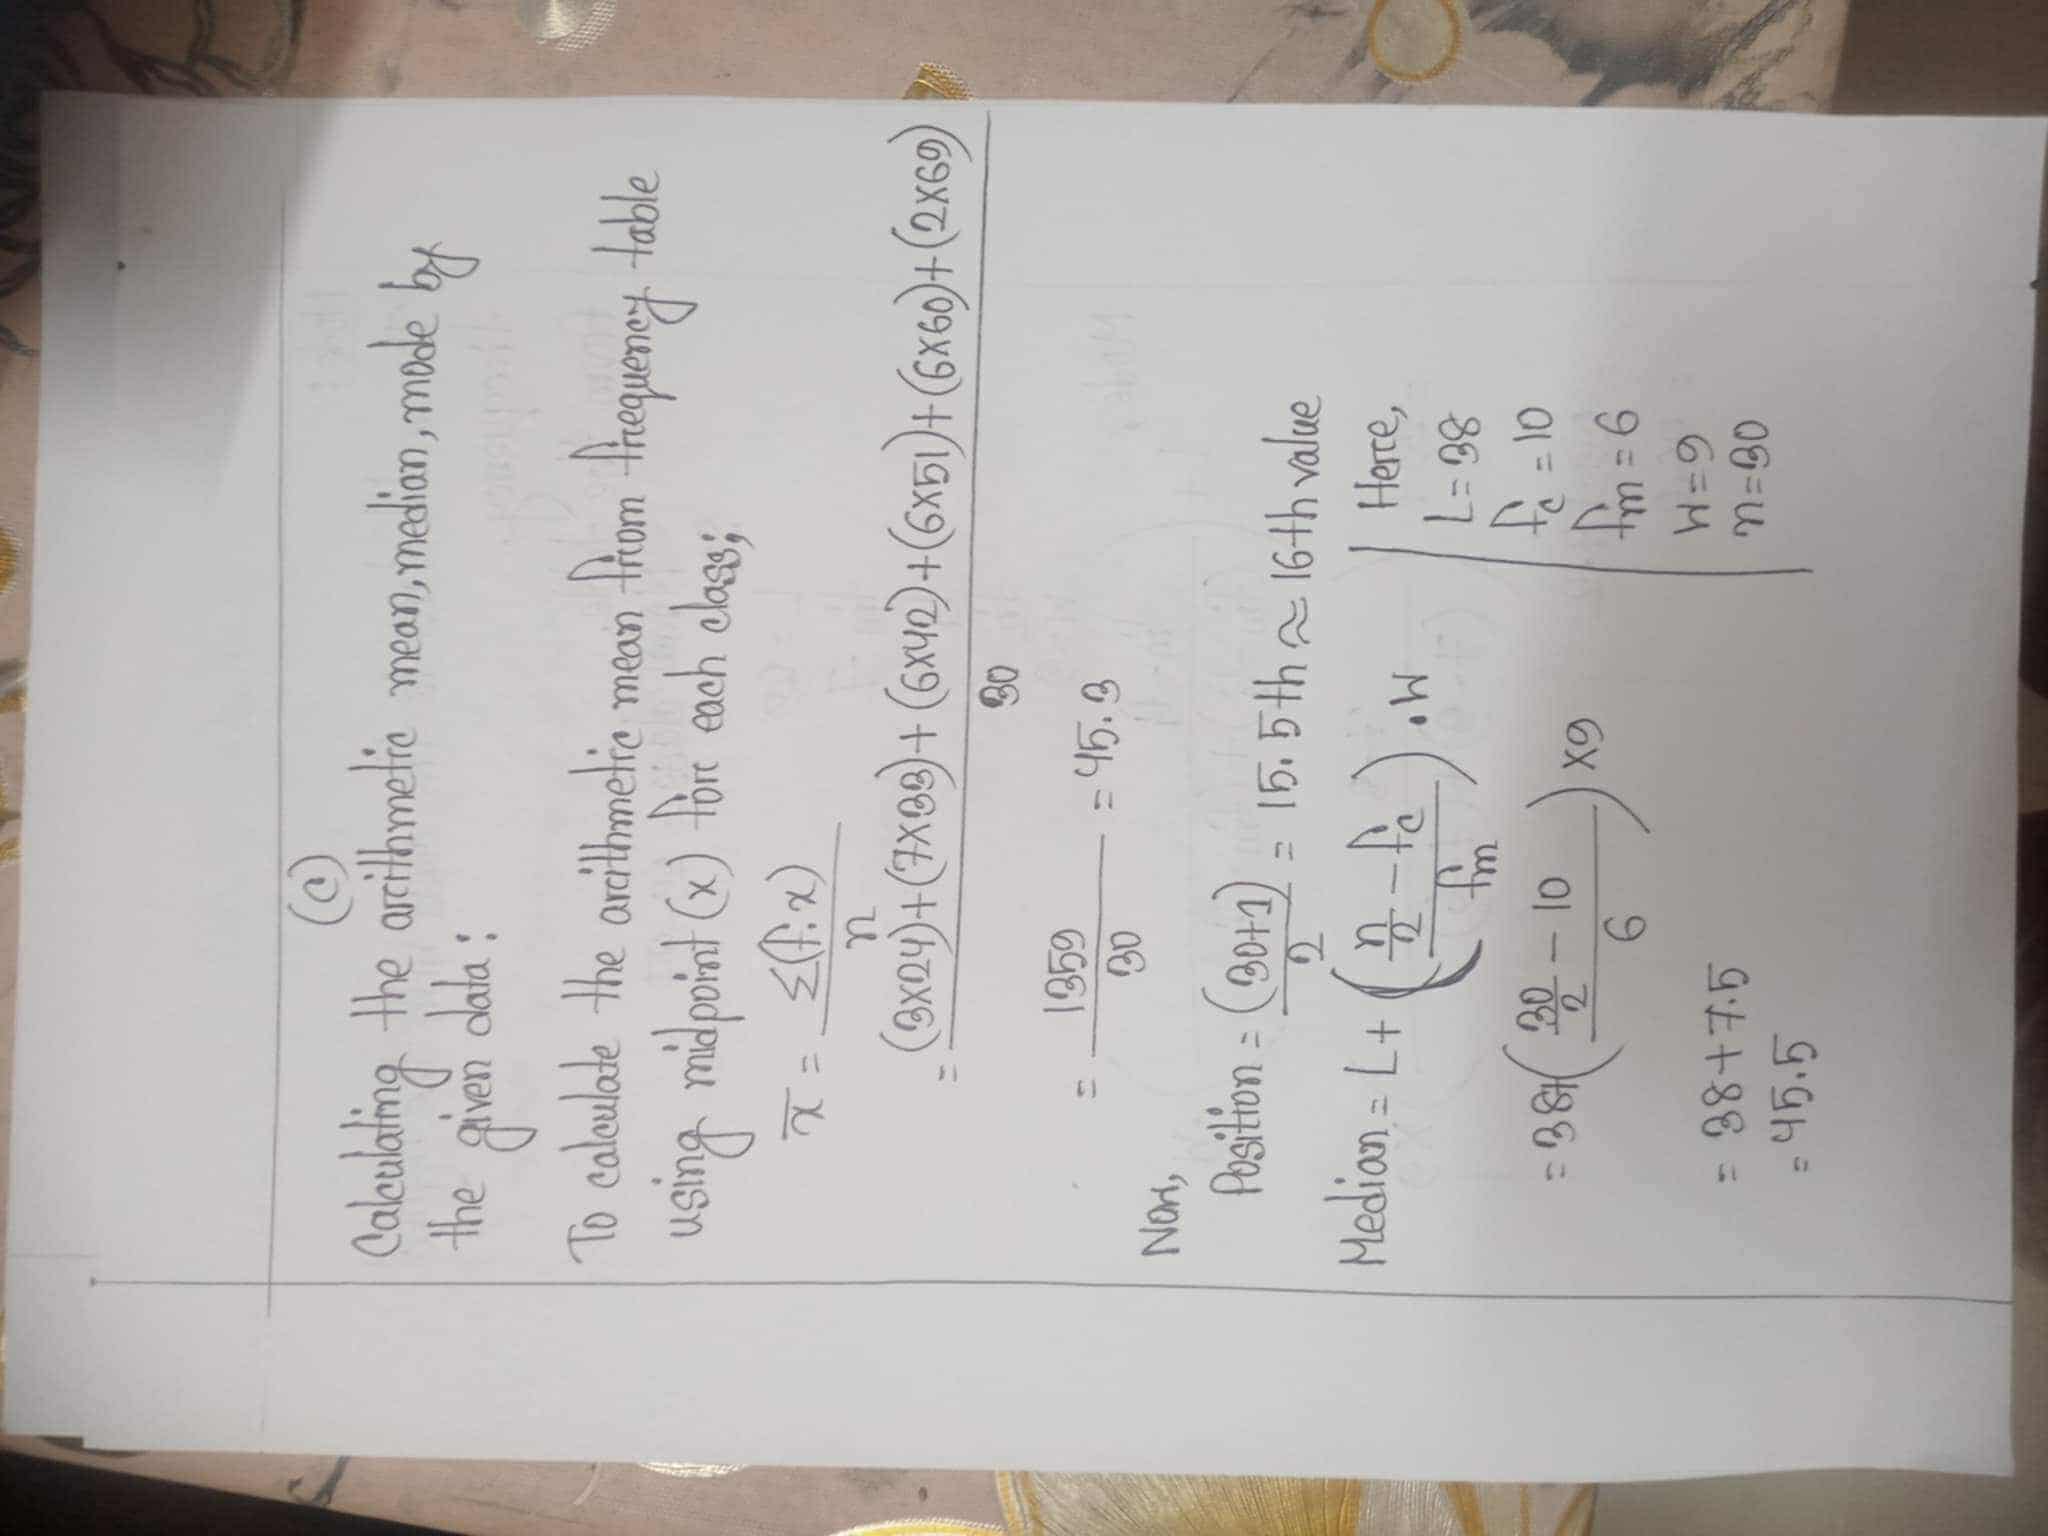 (c)
Calculating the arithmetic mean, median, mode by
the given data:
To calculate the arithmetic mean from frequency table
using midpoint (x) for each class;
x̄ = Σ(f.x) / n
= (3×24)+(7×33)+(6×42)+(6×51)+(6×60)+(2×69) / 30
= 1359 / 30 = 45.3
Now,
Position = (30+1) / 2 = 15.5th ≈ 16th value
Median = L + ((n/2 - fc) / fm) . W
= 38+ ((30/2 - 10) / 6) ×9
= 38+7.5
= 45.5
Here,
L=38
fc = 10
fm = 6
W=9
n=30